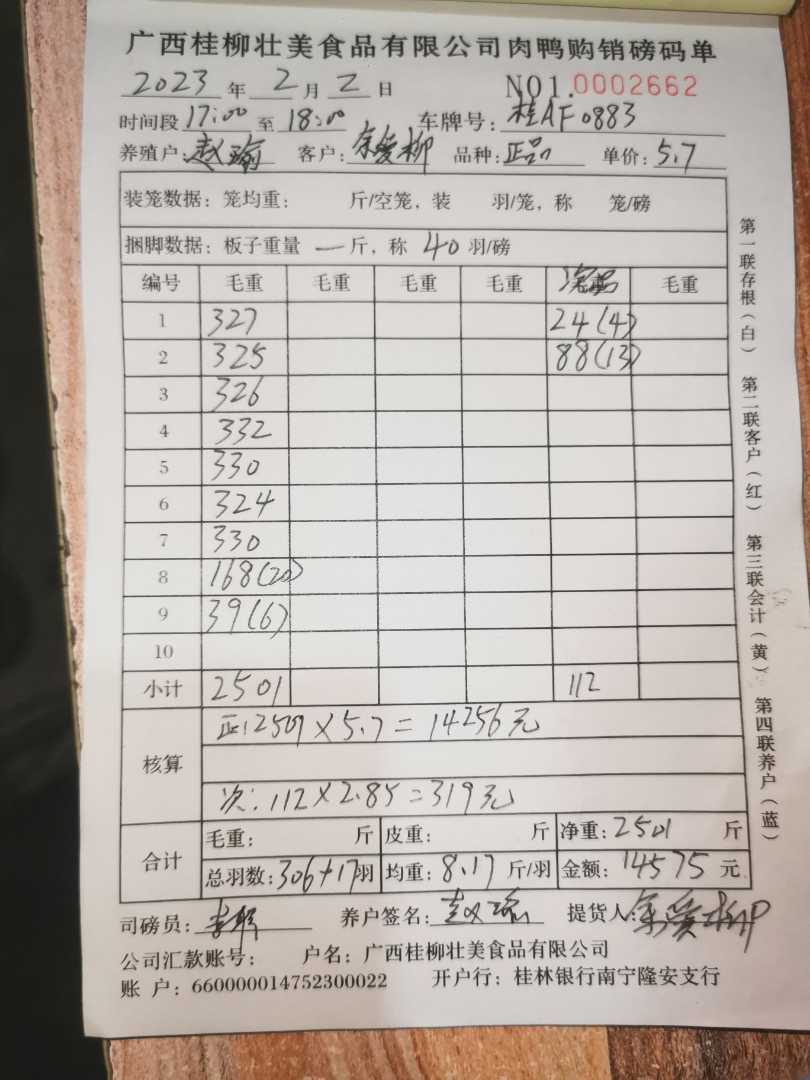 广西桂柳壮美食品有限公司肉鸭购销磅码单
2023 年 2 月 2 日 NO1.0002662
时间段 17:00 至 18:00 车牌号: 桂AF0883
养殖户: 赵瑜 客户: 余爱柳 品种: 正品 单价: 5.7
装笼数据: 笼均重: 斤/空笼, 装 羽/笼, 称 笼/磅
捆脚数据: 板子重量 一 斤, 称 40 羽/磅
编号 毛重 毛重 毛重 毛重 毛重
1 327 24(4)
2 325 88(13)
3 326
4 332
5 330
6 324
7 330
8 168(20)
9 39(6)
10
小计 2501 112
核算 正: 2501×5.7=14256元
次: 112×2.85=319元
合计 毛重: 斤 皮重: 斤 净重: 2501 斤
总羽数: 306+17羽 均重: 8.17 斤/羽 金额: 14575 元
司磅员: 养户签名: 赵瑜 提货人: 余爱柳
公司汇款账号: 户名: 广西桂柳壮美食品有限公司
账 户: 660000014752300022 开户行: 桂林银行南宁隆安支行
第一联存根(白) 第二联客户(红) 第三联会计(黄) 第四联养户(蓝)